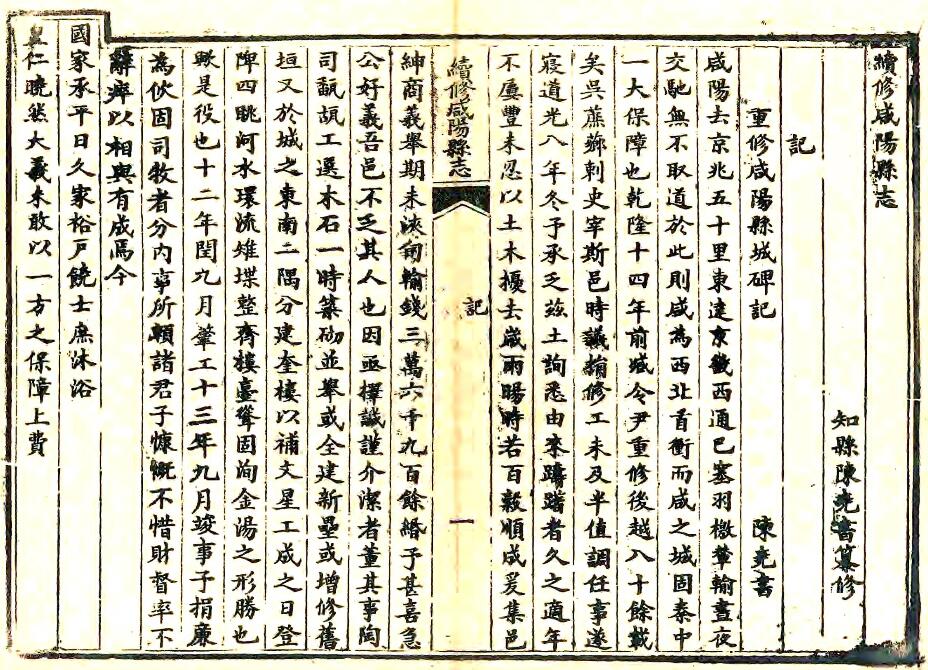 續修咸陽縣志
知縣陳堯書纂修
記
重修咸陽縣城碑記
陳堯書
咸陽去京兆五十里東達京畿西通巴塞羽檄輦輸晝夜
交馳無不取道於此則咸為西北首衝而咸之城固秦中
一大保障也乾隆十四年前臧令尹重修後越八十餘載
矣吳蔗薌刺史宰斯邑時議捐修工未及半值調任事遂
寢道光八年冬予承乏茲土詢悉由來躊躇者久之適年
不屢豐未忍以土木擾去歲雨暘時若百穀順成爰集邑
續修咸陽縣志
記
一
紳商義舉期未浹旬輸錢三萬六千九百餘緡予甚喜急
公好義吾邑不乏其人也因亟擇誠謹介潔者董其事陶
司瓻瓬工選木石一時築砌並舉或全建新壘或增修舊
垣又於城之東南二隅分建奎樓以補文星工成之日登
陴四眺河水環流雉堞整齊樓臺鞏固洵金湯之形勝也
歟是役也十二年閏九月肇工十三年九月竣事予捐廉
為倡固司牧者分內事所賴諸君子慷慨不惜財督率不
辭瘁以相與有成焉今
國家承平日久家裕戶饒士庶沐浴
皇仁曉然大義未敢以一方之保障上費